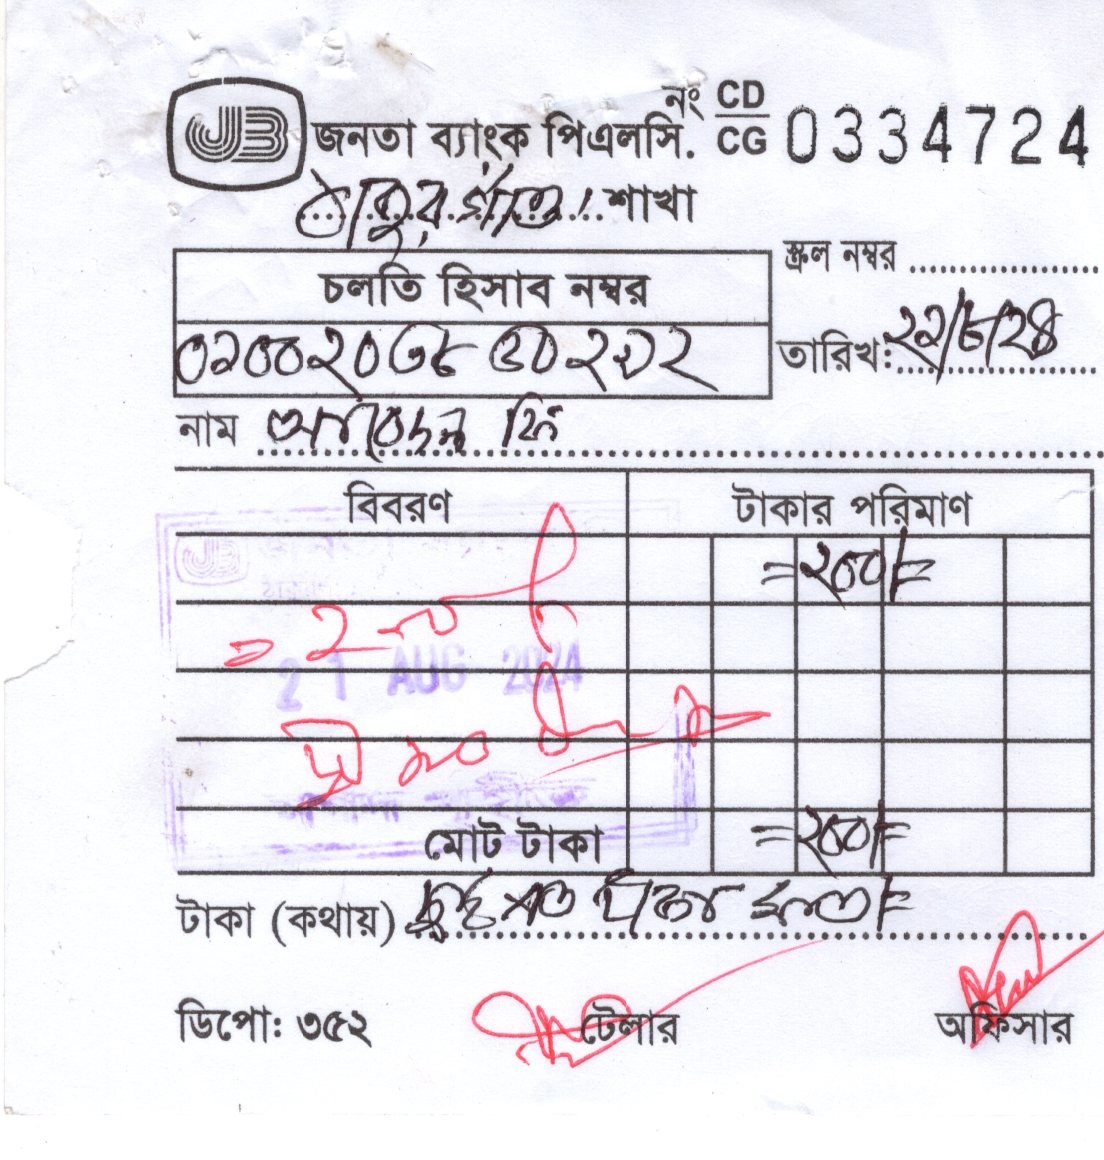 JB জনতা ব্যাংক পিএলসি. নং CD/CG 0334724
ঠাকুরগাঁও শাখা
স্ক্রল নম্বর
চলতি হিসাব নম্বর
তারিখঃ ২১/৮/২৪
নাম আবেদন ফি
বিবরণ টাকার পরিমাণ
=২০০/=
= ২০০/
21 AUG 2024
মোট টাকা =২০০/=
টাকা (কথায়) দুই শত টাকা মাত্র/=
ডিপো: ৩৫২ টেলার অফিসার